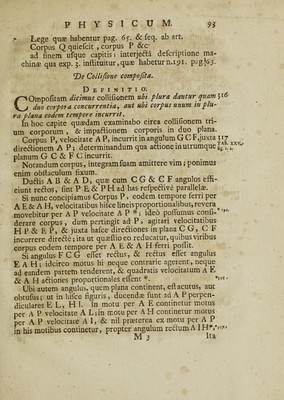 PHYSICUM. 93
Lege quæ habentur pag. 65. & seq. ab art.
Corpus Q quiescit, corpus P &c
ad finem usque capitis: interjectâ descriptione ma-
chinæ qua exp. 3. instituitur, quæ habetur n.191. pag.63.
De Collisione composita.
DEFINITIO.
COmpositam dicimus collisionem ubi plura dantur quam 316
duo corpora concurrentia, aut ubi corpus unum in plu-
ra plana eodem tempore incurrit.
In hoc capite quædam examinabo circa collisionem tri-
um corporum, & impactionem corporis in duo plana.
Corpus P, velocitate AP, incurrit in angulum GCF, juxta 317
directionem AP; determinandum qua actione in utrumque TAB. XXIV.
planum GC & FC incurrit.
Notandum corpus, integram suam amittere vim; ponimus
enim obstaculum fixum.
Ductis AB & AD, quæ cum CG & CF angulos effi-
ciunt rectos, sint PE & PH ad has respectivè parallelæ.
Si nunc concipiamus Corpus P, eodem tempore ferri per
AE & AH, velocitatibus hisce lineis proportionalibus, revera
movebitur per AP velocitate AP *; ideò possumus consi-
derare corpus, dum pertingit ad P, agitari velocitatibus
HP & EP, & juxta hasce directiones in plana CG, CF
incurrere directè; ita ut quæstio eo reducatur, quibus viribus
corpus eodem tempore per AE & AH ferri possit.
Si angulus FCG esset rectus, & rectus esset angulus
EAH; idcirco motus hi neque contrarie agerent, neque
ad eandem partem tenderent, & quadratis velocitatum AE
& AH actiones proportionales essent *.
Ubi autem angulus, quem plana continent, est acutus, aut
obtusus; ut in hisce figuris, ducendæ sunt ad AP perpen-
diculares EL, HI. In motu per AE continetur motus
per AP velocitate AL; in motu per AH continetur motus
per AP velocitate AI, & nil præterea ex motu per AP
in his motibus continetur, propter angulum rectum AIH*,
M 3 Ita